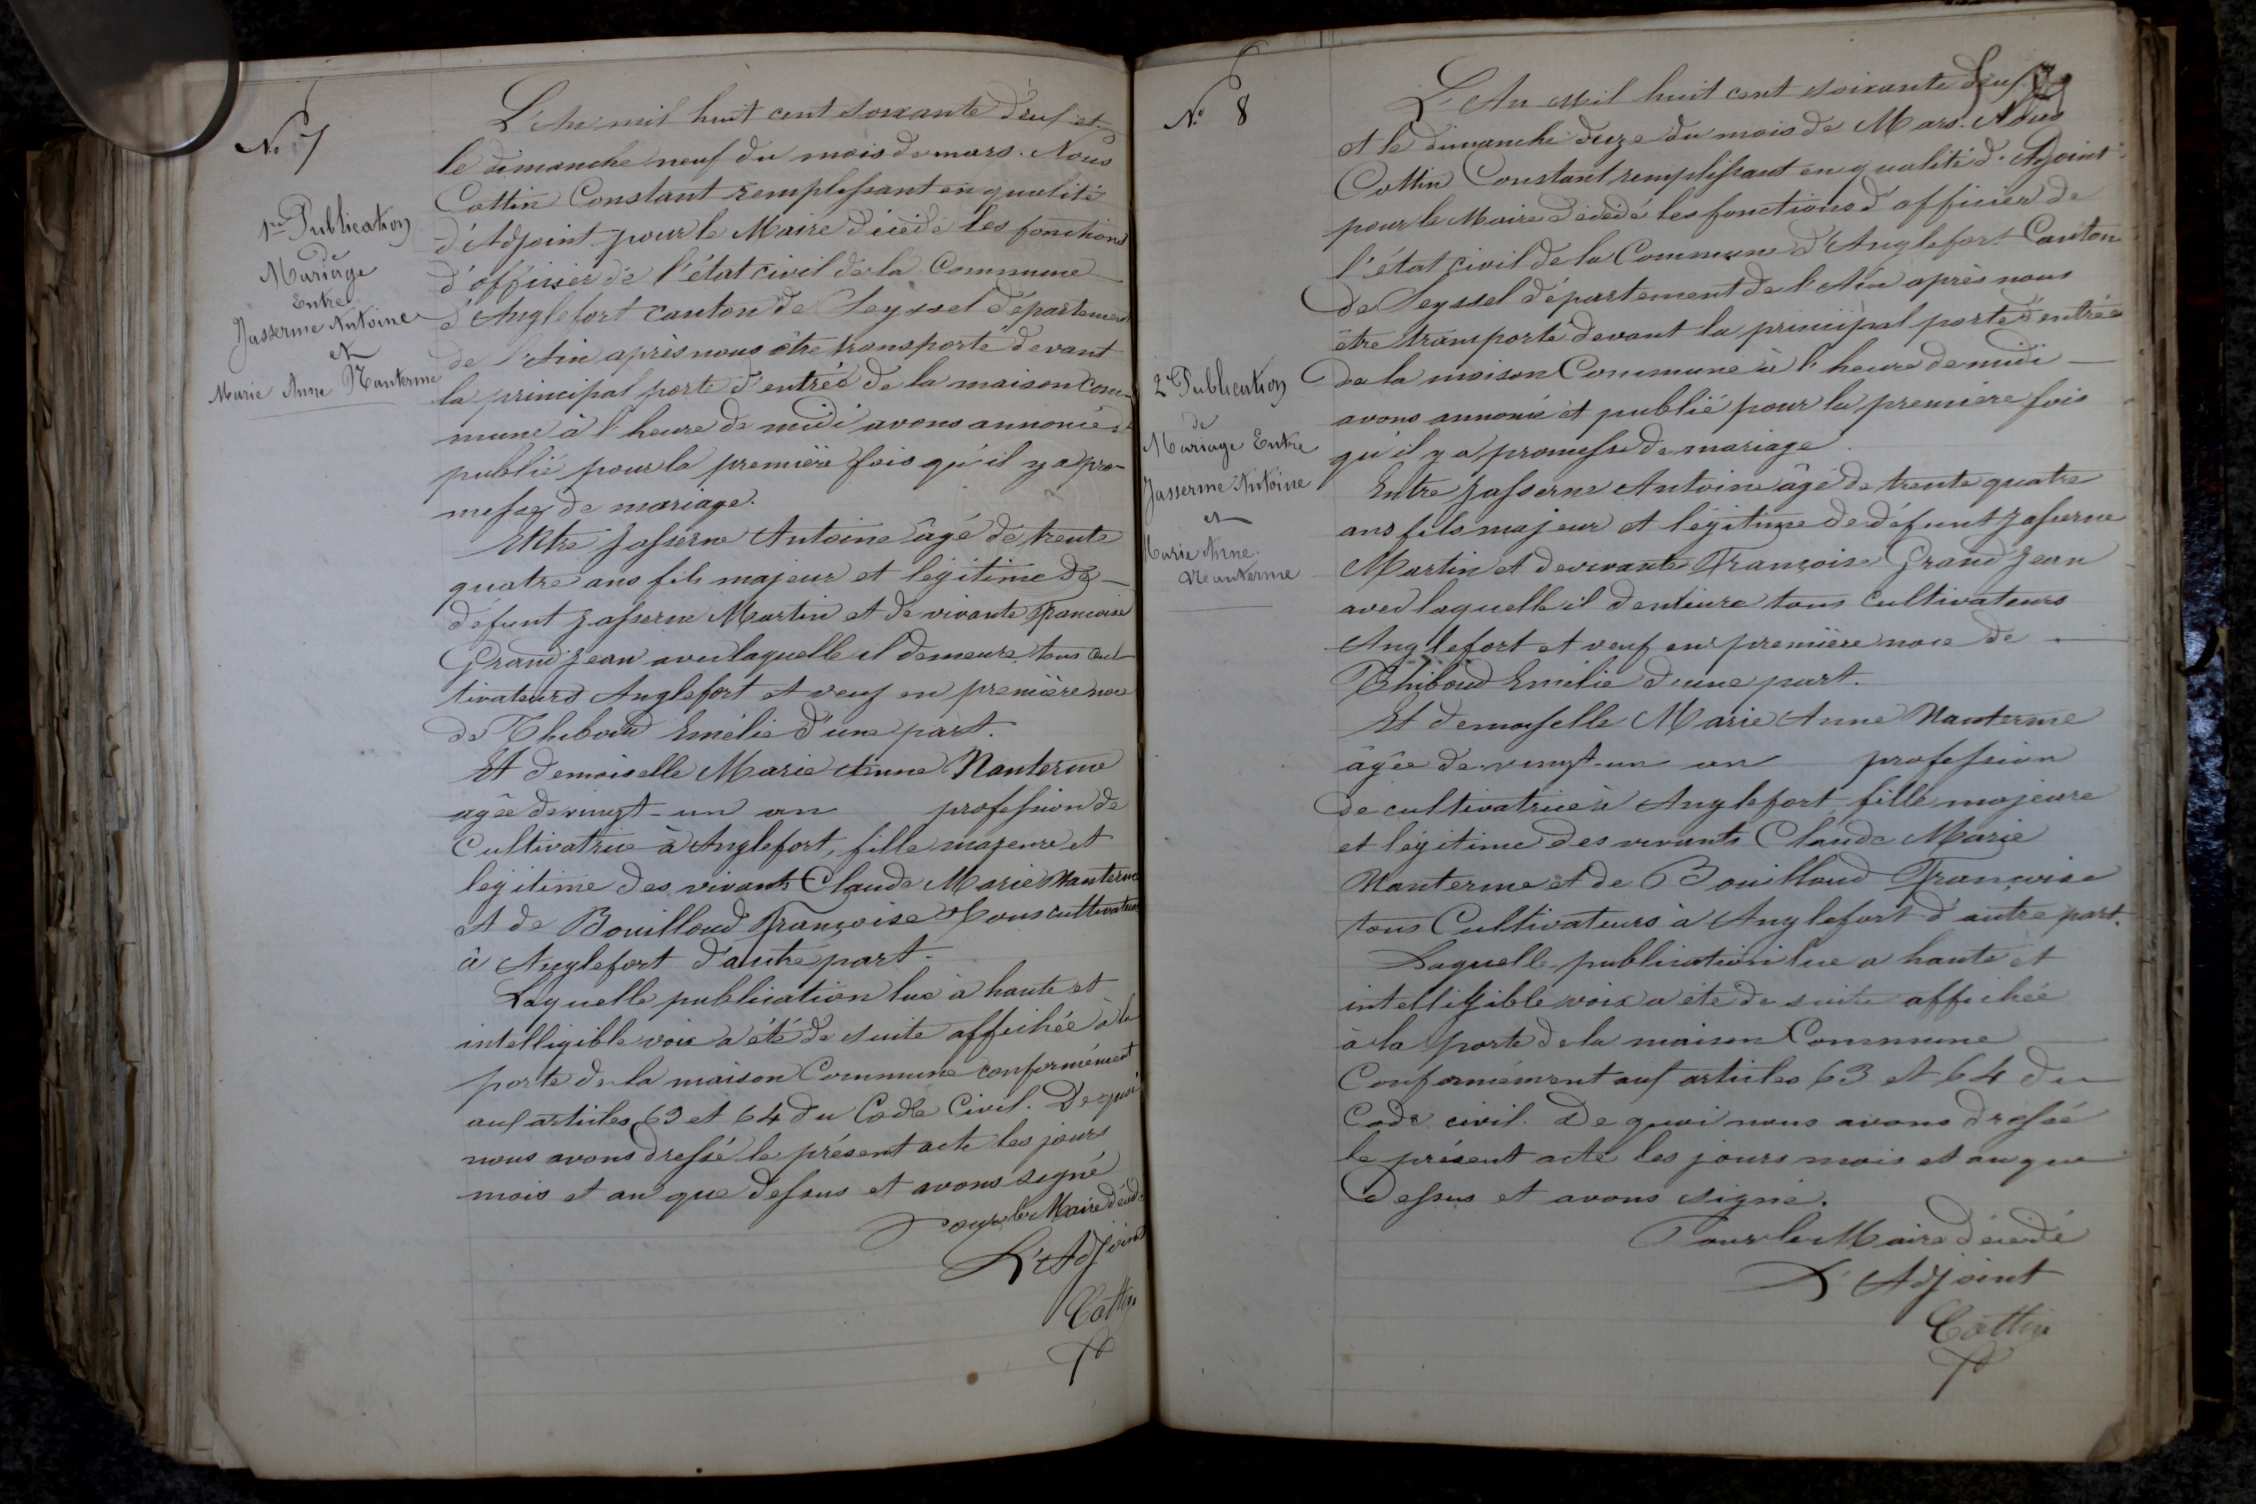 N° 7
1re Publication
de
Mariage
Entre
Jasserme Antoine
et
Marie Anne Nanterme
L'An mil huit cent soixante deux et
le dimanche neuf du mois de mars. Nous
Cottin Constant remplissant en qualité
d'Adjoint pour le Maire décédé les fonctions
d'officier de l'état civil de la Commune
d'Anglefort canton de Seyssel département
de l'Ain après nous être transporté devant
la principal porte d'entrée de la maison com-
mune à l'heure de midi avons annoncé et
publié pour la première fois qu'il y a pro-
messe de mariage.
Entre Jasserme Antoine âgé de trente
quatre ans fils majeur et légitime de
défunt Jasserme Martin et de vivante Françoise
Grand Jean avec laquelle il demeure tous cul-
tivateurs Anglefort et veuf en première noce
de Thiboud Emélie d'une part.
Et demoiselle Marie Anne Nanterme
agée de vingt-un an profession de
Cultivatrice à Anglefort, fille majeure et
légitime des vivants Claude Marie Nanterme
et de Bouilloud Françoise tous cultivateurs
à Anglefort d'autre part.
Laquelle publication lue à haute et
intelligible voix a été de suite affichée à la
porte de la maison Commune conformément
aux articles 63 et 64 du Code Civil. De quoi
nous avons dressé le présent acte les jours
mois et an que dessus et avons signé
Pour le Maire décédé
L'Adjoint
Cottin
N° 8
2e Publication
de
Mariage Entre
Jasserme Antoine
et
Marie Anne
Nanterme
L'An mil huit cent soixante deux
et le dimanche seize du mois de Mars. Nous
Cottin Constant remplissant en qualité d'Adjoint
pour le Maire décédé les fonctions d'officier de
l'état civil de la Commune d'Anglefort Canton
de Seyssel département de l'Ain après nous
être transporté devant la principal porte d'entrée
de la maison Commune à l'heure de midi
avons annoncé et publié pour la première fois
qu'il y a promesse de mariage.
Entre Jasserme Antoine âgé de trente quatre
ans fils majeur et légitime de défunt Jasserme
Martin et de vivante Françoise Grand Jean
avec laquelle il demeure tous cultivateurs
Anglefort et veuf en première noce de
Thiboud Emélie d'une part.
Et demoiselle Marie Anne Nanterme
âgée de vingt-un an profession
de cultivatrice à Anglefort fille majeure
et légitime des vivants Claude Marie
Nanterme et de Bouilloud Françoise
tous Cultivateurs à Anglefort d'autre part.
Laquelle publication lue a haute et
intelligible voix a été de suite affichée
à la porte de la maison Commune
Conformément aux articles 63 et 64 du
Code civil. De quoi nous avons dressé
le présent acte les jours mois et an que
dessus et avons signé.
Pour le Maire décédé
L'Adjoint
Cottin